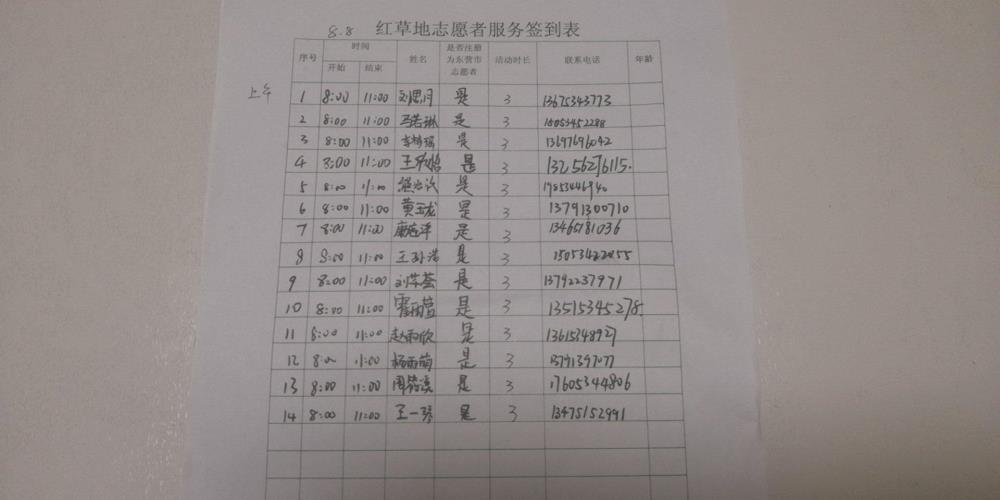 8.8 红草地志愿者服务签到表
序号 时间 开始 结束 姓名 是否注册为东营市志愿者 活动时长 联系电话 年龄
上午
1 8:00 11:00 刘思月 是 3 13675343773
2 8:00 11:00 是 3 15053452288
3 8:00 11:00 是 3 13697696042
4 8:00 11:00 是 3 13256276115.
5 8:00 11:00 是 3
6 8:00 11:00 黄玉龙 是 3 13791300710
7 8:00 11:00 是 3 13465181036
8 8:00 11:00 是 3
9 8:00 11:00 是 3 13792237971
10 8:00 11:00 是 3 13515345278
11 8:00 11:00 赵雨欣 是 3 13615348927
12 8:00 11:00 杨雨萌 是 3
13 8:00 11:00 是 3 17605344806
14 8:00 11:00 王一琴 是 3 13475152991